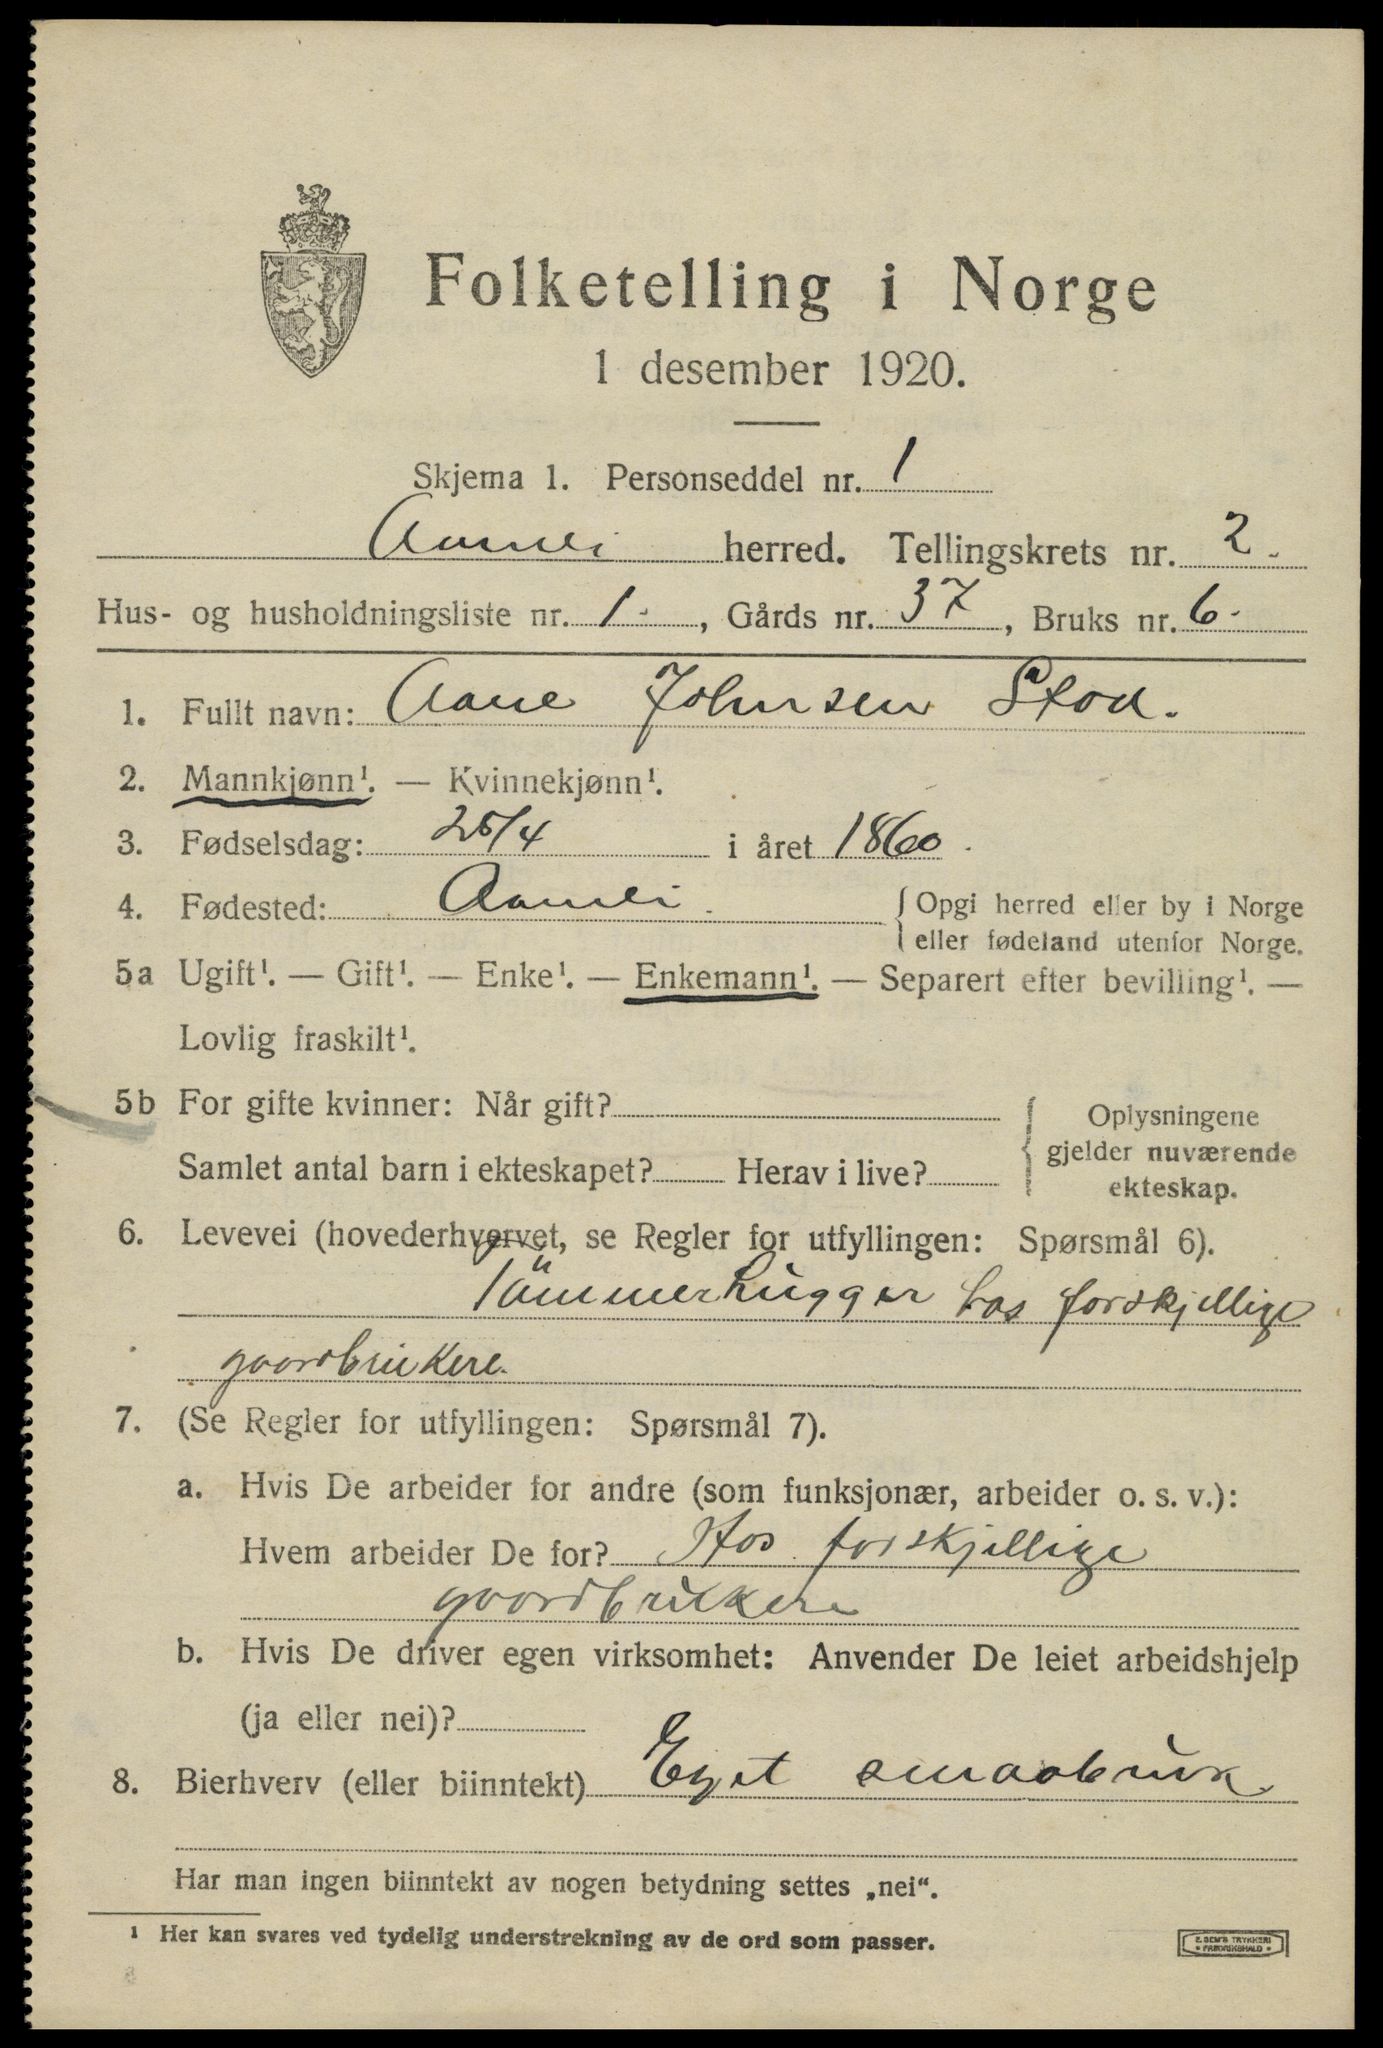 Folketelling i Norge
1 desember 1920.
Skjema 1. Personseddel nr. 1
Aamli herred. Tellingskrets nr. 2.
Hus- og husholdningsliste nr. 1, Gårds nr. 37, Bruks nr. 6.
1. Fullt navn: Johnsen
2. Mannkjønn¹. — Kvinnekjønn¹.
3. Fødselsdag: 25/4 i året 1860.
4. Fødested: Aamli. Opgi herred eller by i Norge
eller fødeland utenfor Norge.
5a Ugift¹. — Gift¹. — Enke¹. — Enkemann¹. — Separert efter bevilling¹. —
Lovlig fraskilt¹.
5b For gifte kvinner: Når gift?
Samlet antal barn i ekteskapet? Herav i live?
Oplysningene
gjelder nuværende
ekteskap.
6. Levevei (hovederhvervet, se Regler for utfyllingen: Spørsmål 6).
Tömmerhugger hos forskjellige
gaardbrukere.
7. (Se Regler for utfyllingen: Spørsmål 7).
a. Hvis De arbeider for andre (som funksjonær, arbeider o. s. v.):
Hvem arbeider De for? Hos forskjellige
gaardbrukere
b. Hvis De driver egen virksomhet: Anvender De leiet arbeidshjelp
(ja eller nei)?
8. Bierhverv (eller biinntekt) Eget smaabruk.
Har man ingen biinntekt av nogen betydning settes „nei“.
¹ Her kan svares ved tydelig understrekning av de ord som passer.
E. SEM'S TRYKKERI
* FREDRIKSHALD *